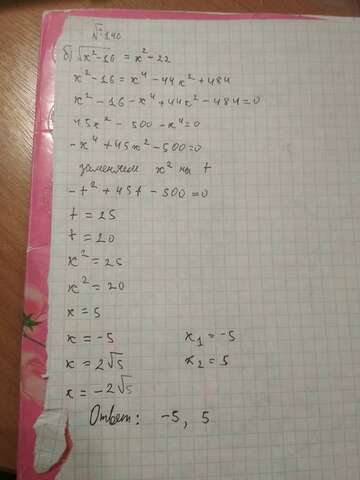 №140
б) √x²-16 = x²-22
x²-16 = x⁴-44x²+484
x²-16-x⁴+44x²-484=0
45x²-500-x⁴=0
-x⁴+45x²-500=0
заменяем x² на t
-t²+45t-500=0
t = 25
t = 20
x² = 25
x² = 20
x = 5
x = -5 x₁ = -5
x = 2√5 x₂ = 5
x = -2√5
Ответ: -5, 5